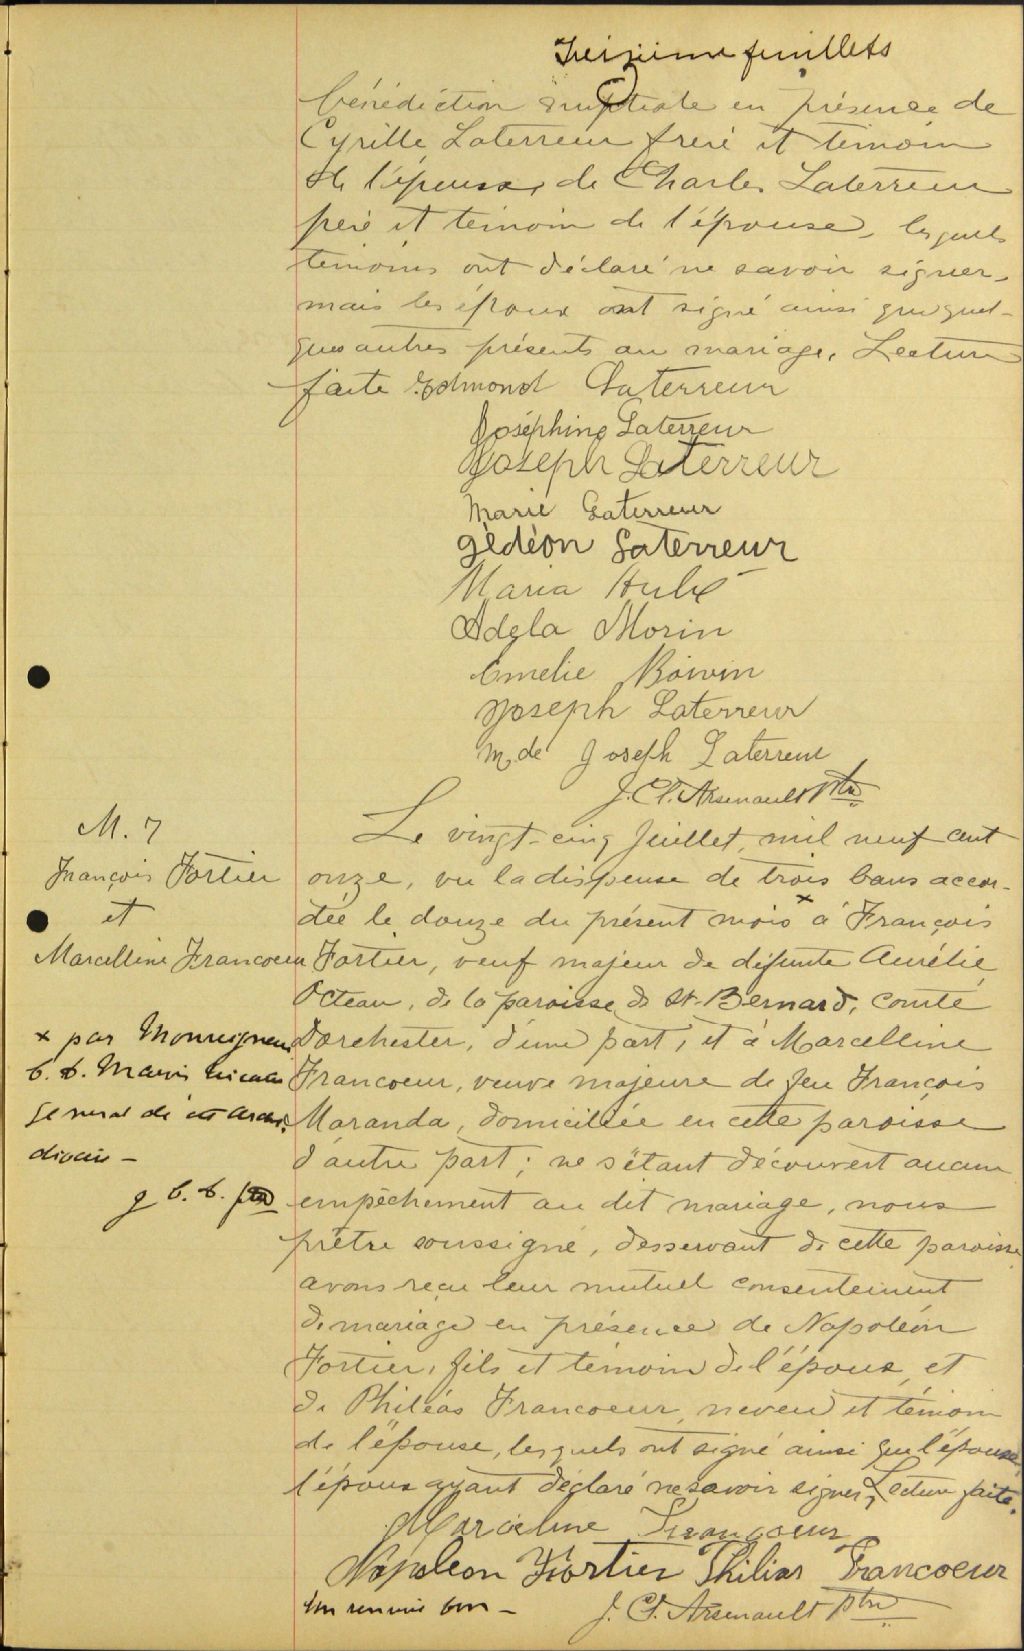 Treizieme feuillets
bénédiction nuptiale en présence de
Cyrille Laterreur frere et temoin
de l'époux, de Charles Laterreur
pere et temoin de l'épouse, lesquels
temoins ont déclaré ne savoir signer,
mais les époux ont signé ainsi que quel-
ques autres présents au mariage. Lecture
faite Edmond Laterreur
Joséphine Laterreur
Joseph Laterreur
Marie Laterreur
Gédéon Laterreur
Maria
Adela Morin
Emelie Boivin
Joseph Laterreur
M.de Joseph Laterreur
J. Cl. Arsenault Ptre
M. 7
François Fortier
et
Marcelline Francoeur
x par Monseigneur
C. A. Marois vicaire
general de cet archi-
diocèse –
J C. A. ptre
Le vingt-cinq Juillet, mil neuf cent
onze, vu la dispense de trois bans accor-
dée le douze du présent mois x à François
Fortier, veuf majeur de défunte Aurélie
Octeau, de la paroisse de St-Bernard, comté
Dorchester, d'une part, et à Marcelline
Francoeur, veuve majeure de feu François
Maranda, domiciliée en cette paroisse
d'autre part; ne s'étant découvert aucun
empêchement au dit mariage, nous
prêtre soussigné, desservant de cette paroisse
avons reçu leur mutuel consentement
de mariage en présence de Napoléon
Fortier, fils et témoin de l'époux, et
de Philéas Francoeur, neveu et témoin
de l'épouse, lesquels ont signé ainsi que l'épouse,
l'époux ayant déclaré ne savoir signer, Lecture faite.
Marceline Francoeur
Napoleon Fortier Philias Francoeur
Un renvoi bon – J. Cl. Arsenault Ptre